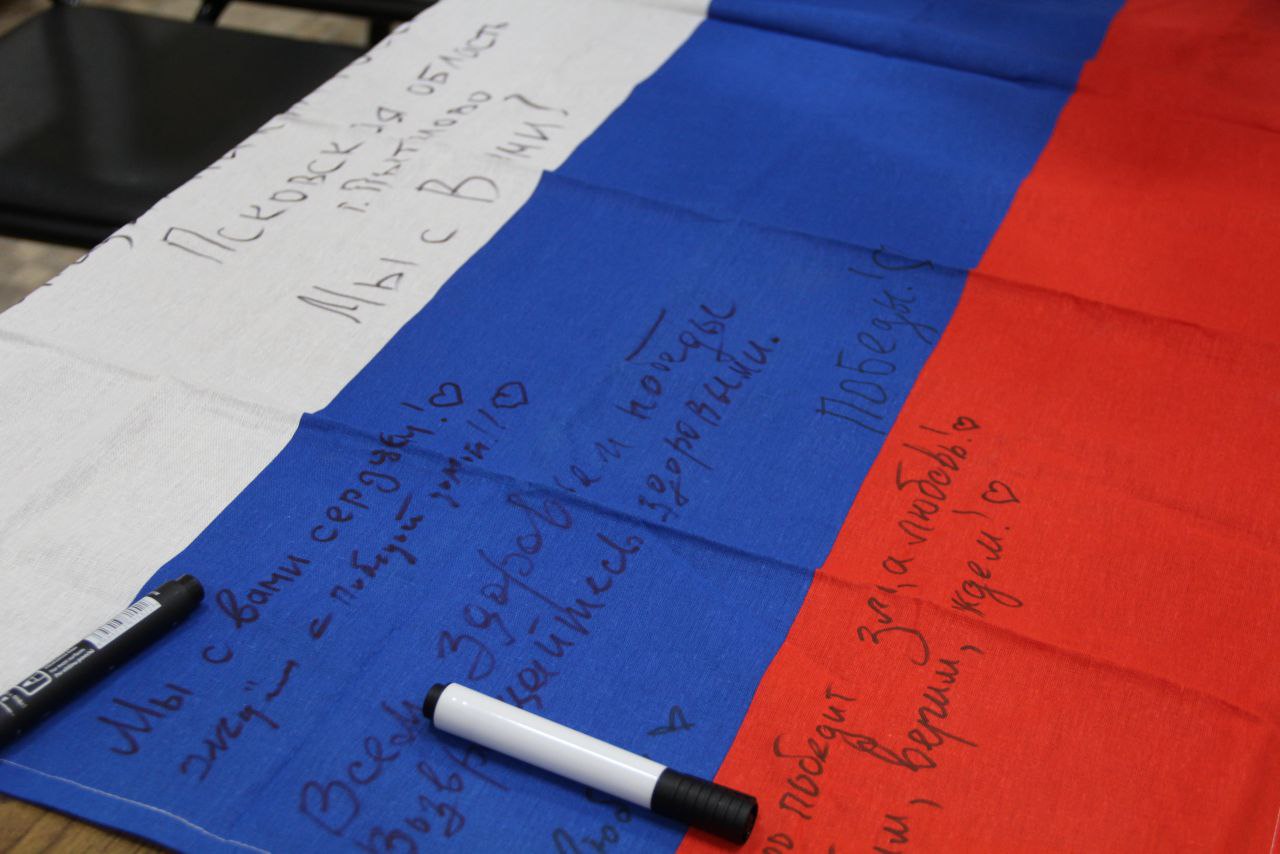 Псковская область
г. Пыталово
Мы с Вами!
Мы с вами сердцем! ♡
ждём с победой домой!! ♡
Всем здоровья и победы
Возвращайтесь здоровыми.
Победы! ♡
победит зло, а любовь! ♡
верим, ждем! ♡